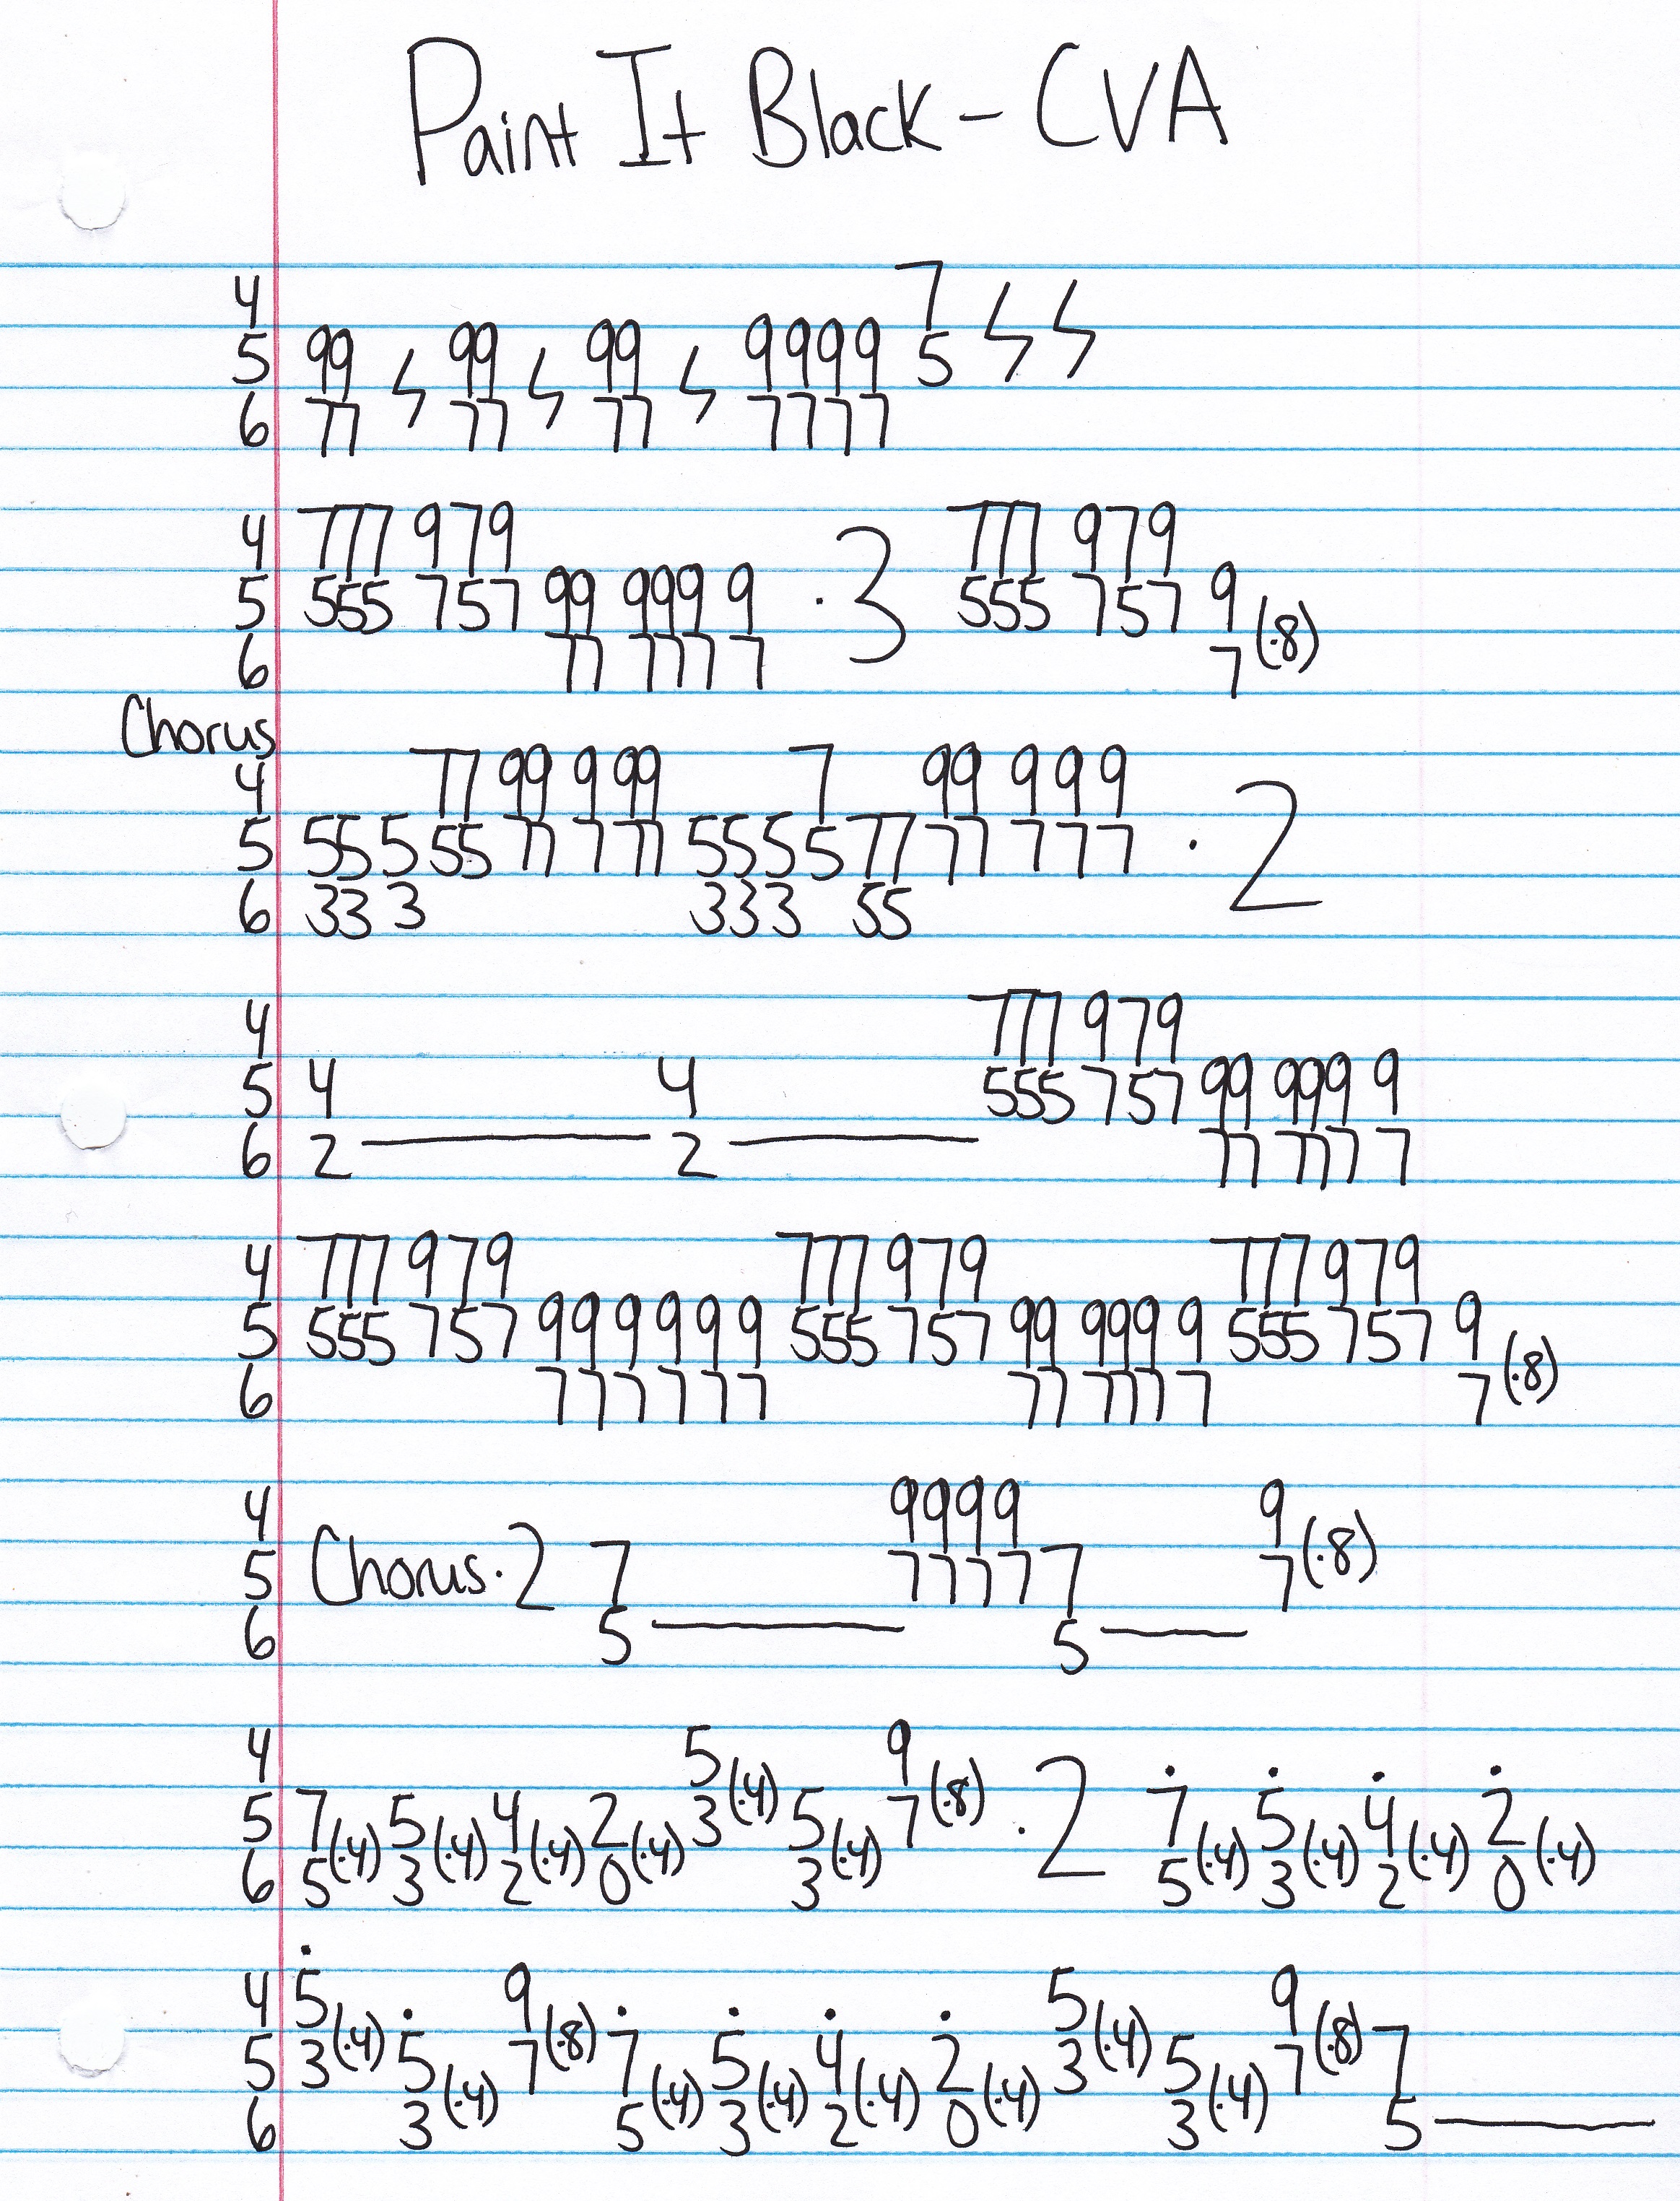 Paint It Black - CVA
4 7
5 99 𝄽 99 𝄽 99 𝄽 9999 5 𝄽 𝄽
6 77 77 77 7777
4 777 979 777 979
5 555 757 99 999 9 · 3 555 757 9
6 77 777 7 7 (·8)
Chorus
4 77 99 9 99 7 99 9 9 9
5 55 5 55 77 7 77 555 5 77 77 7 7 7 · 2
6 33 3 333 55
4 777 979
5 4 4 555 757 99 999 9
6 2 — 2 — 77 777 7
4 777 979 777 979 777 979
5 555 757 99 9 9 9 9 555 757 99 999 9 555 757 9
6 77 7 7 7 7 77 777 7 7 (·8)
4 9999 9
5 Chorus · 2 7 7777 7 7 (·8)
6 5 — 5 —
4 5 9
5 7 5 4 2 3 (·4) 5 7 (·8) · 2 7̇ 5̇ 4̇ 2̇
6 5 (·4) 3 (·4) 2 (·4) 0 (·4) 3 (·4) 5 (·4) 3 (·4) 2 (·4) 0 (·4)
4 5̇ 9 5 9
5 3 (·4) 5̇ 7 (·8) 7̇ 5̇ 4̇ 2̇ 3 (·4) 5 7 (·8) 7
6 3 (·4) 5 (·4) 3 (·4) 2 (·4) 0 (·4) 3 (·4) 5 —